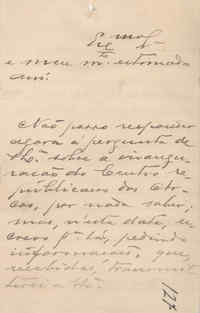 Exmo
e meu mto estimado
ami.
Não posso responder
agora a pergunta de
V. sobre a inaugu-
ração do Centro re-
publicano das
por nada saber;
mas, n'esta data, es-
crevo pa lá, pedindo
informações, que,
recebidas, transmit-
tirei a
124